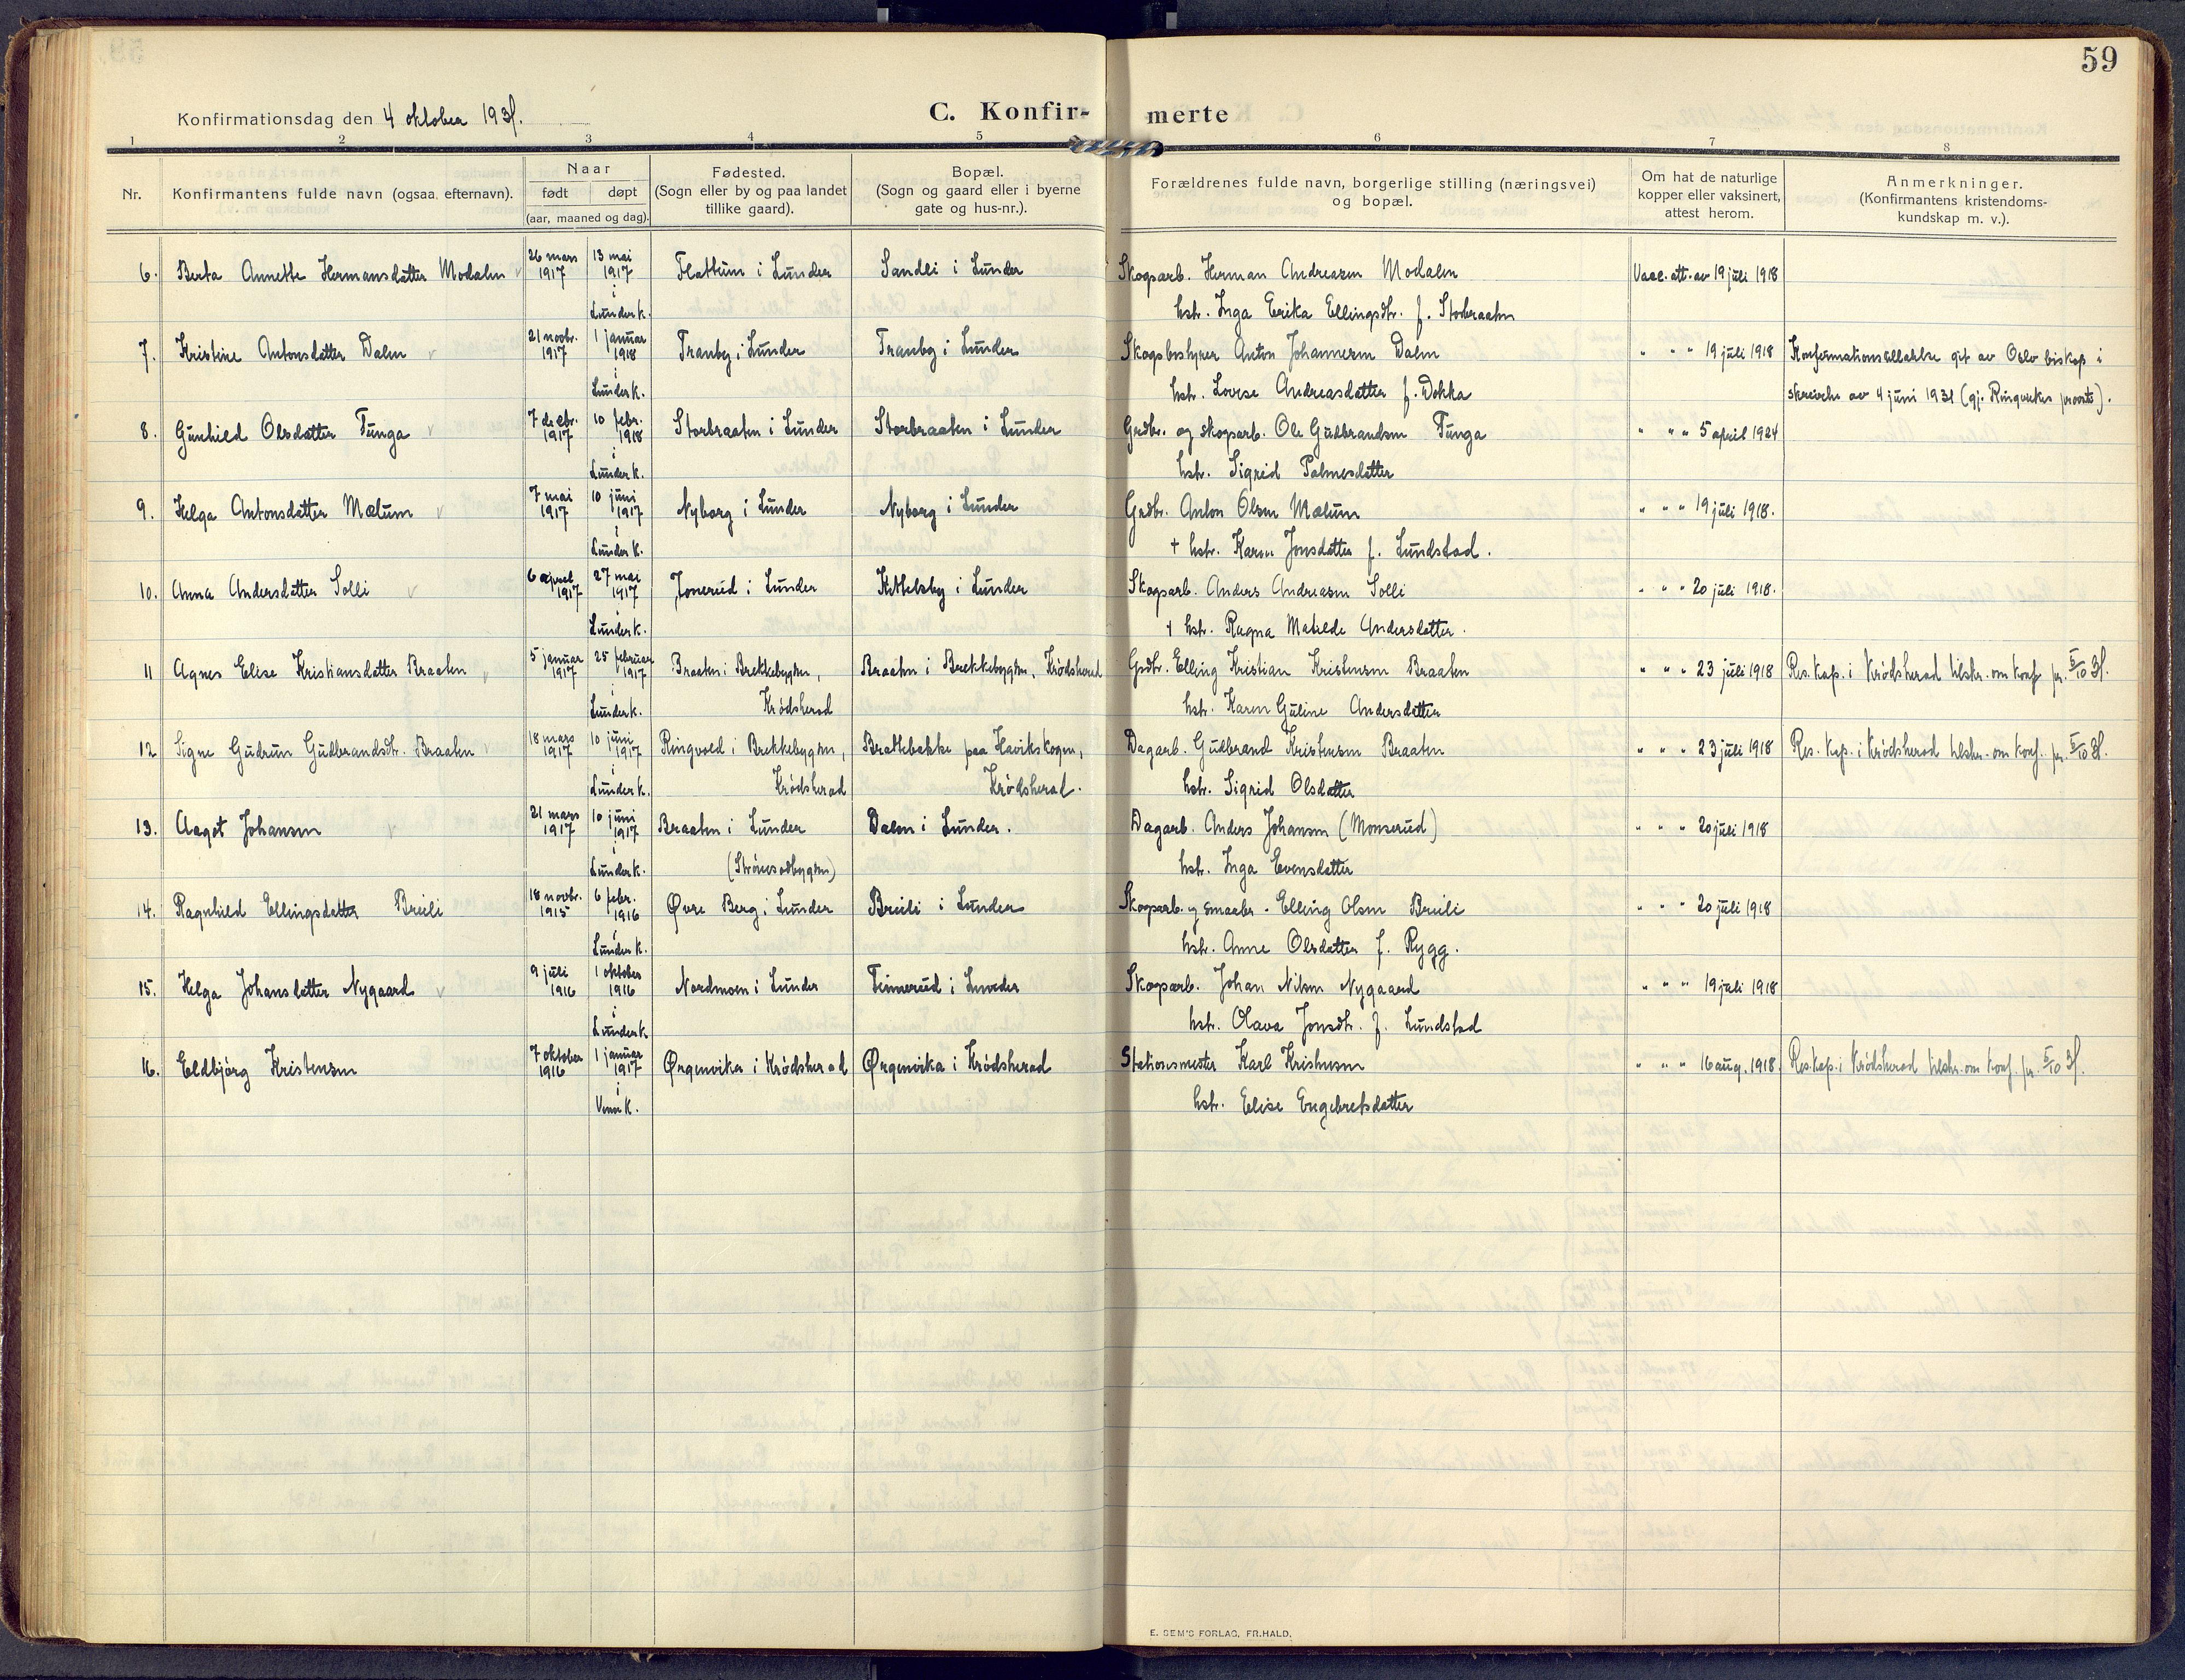 59
Konfirmationsdag den 4 oktober 1931.
C. Konfir- merte
1 2 3 4 5 6 7 8
Nr.
Konfirmantens fulde navn (ogsaa efternavn).
Naar
født døpt
(aar, maaned og dag).
Fødested.
(Sogn eller by og paa landet
tillike gaard).
Bopæl.
(Sogn og gaard eller i byerne
gate og hus-nr.).
Forældrenes fulde navn, borgerlige stilling (næringsvei)
og bopæl.
Om hat de naturlige
kopper eller vaksinert,
attest herom.
Anmerkninger.
(Konfirmantens kristendoms-
kundskap m. v.).
6. Berta Annette Hermansdatter Modalen 26 mars 1917 13 mai 1917 Flattum i Lunder Sandli i Lunder Skogsarb. Herman Andreasen Modalen Vacc. att. av 19 juli 1918
i Lunder k. hstr. Inga Erika Ellingsdtr. f. Storbraaten
7. Kristine Antonsdatter Dalen 21 novbr. 1917 1 januar 1918 Tranby i Lunder Tranby i Lunder Skogsbestyrer Anton Johannesen Dalen " " " 19 juli 1918 Konfirmationstillatelse git av Oslo biskop i
i Lunder k. hstr. Lovise Andreasdatter f. Dokka skrivelse av 4 juni 1931 (gj. Ringerikes provsti).
8. Gunhild Olsdatter Tunga 7 decbr. 1917 10 febr. 1918 Storbraaten i Lunder Storbraaten i Lunder Grdbr. og skogsarb. Ole Gudbrandsen Tunga " " " 5 april 1924
i Lunder k. hstr. Sigrid Palmesdatter
9. Helga Antonsdatter Mælum 7 mai 1917 10 juni 1917 Nyborg i Lunder Nyborg i Lunder Grdbr. Anton Olsen Mælum " " " 19 juli 1918.
i Lunder k. † hstr. Karen Jonsdatter f. Lundstad.
10. Anna Andersdatter Solli 6 april 1917 27 mai 1917 Jonerud i Lunder Kittelsby i Lunder Skogsarb. Anders Andreasen Solli " " " 20 juli 1918.
i Lunder k. † hstr. Ragna Matilde Andersdatter.
11 Agnes Elise Kristiansdatter Braaten 5 januar 1917 25 februar 1917 Braaten i Brekkebygden, Braaten i Brekkebygden, Krødsherad Grdbr. Elling Kristian Kristensen Braaten " " " 23 juli 1918 Res. kap. i Krødsherad tilskr. om konf. pr. 5/10 31.
i Lunder k. Krødsherad hstr. Karen Guline Andersdatter
12 Signe Gudrun Gudbrandsdtr. Braaten 18 mars 1917 10 juni 1917 Ringvold i Brekkebygden, Brattebakke paa Havikskogen, Dagarb. Gudbrand Kristensen Braaten " " " 23 juli 1918 Res. kap. i Krødsherad tilskr. om konf. pr. 5/10 31.
i Lunder k. Krødsherad Krødsherad. hstr. Sigrid Olsdatter
13. Aagot Johansen 21 mars 1917 10 juni 1917 Braaten i Lunder Dalen i Lunder. Dagarb. Anders Johansen (Monserud) " " " 20 juli 1918
i Lunder k. (Strømsodbygden) hstr. Inga Evensdatter
14. Ragnhild Ellingsdatter Breili 18 novbr. 1915 6 febr. 1916 Øvre Berg i Lunder Breili i Lunder Skogsarb. og smaabr. Elling Olsen Breili " " " 20 juli 1918
i Lunder k. hstr. Anne Olsdatter f. Rygg.
15. Helga Johansdatter Nygaard 9 juli 1916 1 oktober 1916 Nordmoen i Lunder Finnerud i Lunder Skogsarb. Johan Nilsen Nygaard " " " 19 juli 1918
i Lunder k. hstr. Olava Jonsdtr. f. Lundstad
16. Eldbjørg Kristensen 7 oktober 1916 1 januar 1917 Ørgenvika i Krødsherad Ørgenvika i Krødsherad Stationsmester Karl Kristensen " " " 16 aug. 1918. Res. kap. i Krødsherad tilskr. om konf. pr. 5/10 31.
i Veme k. hstr. Elise Engebretsdatter
E. SEM'S FORLAG, FR.HALD.